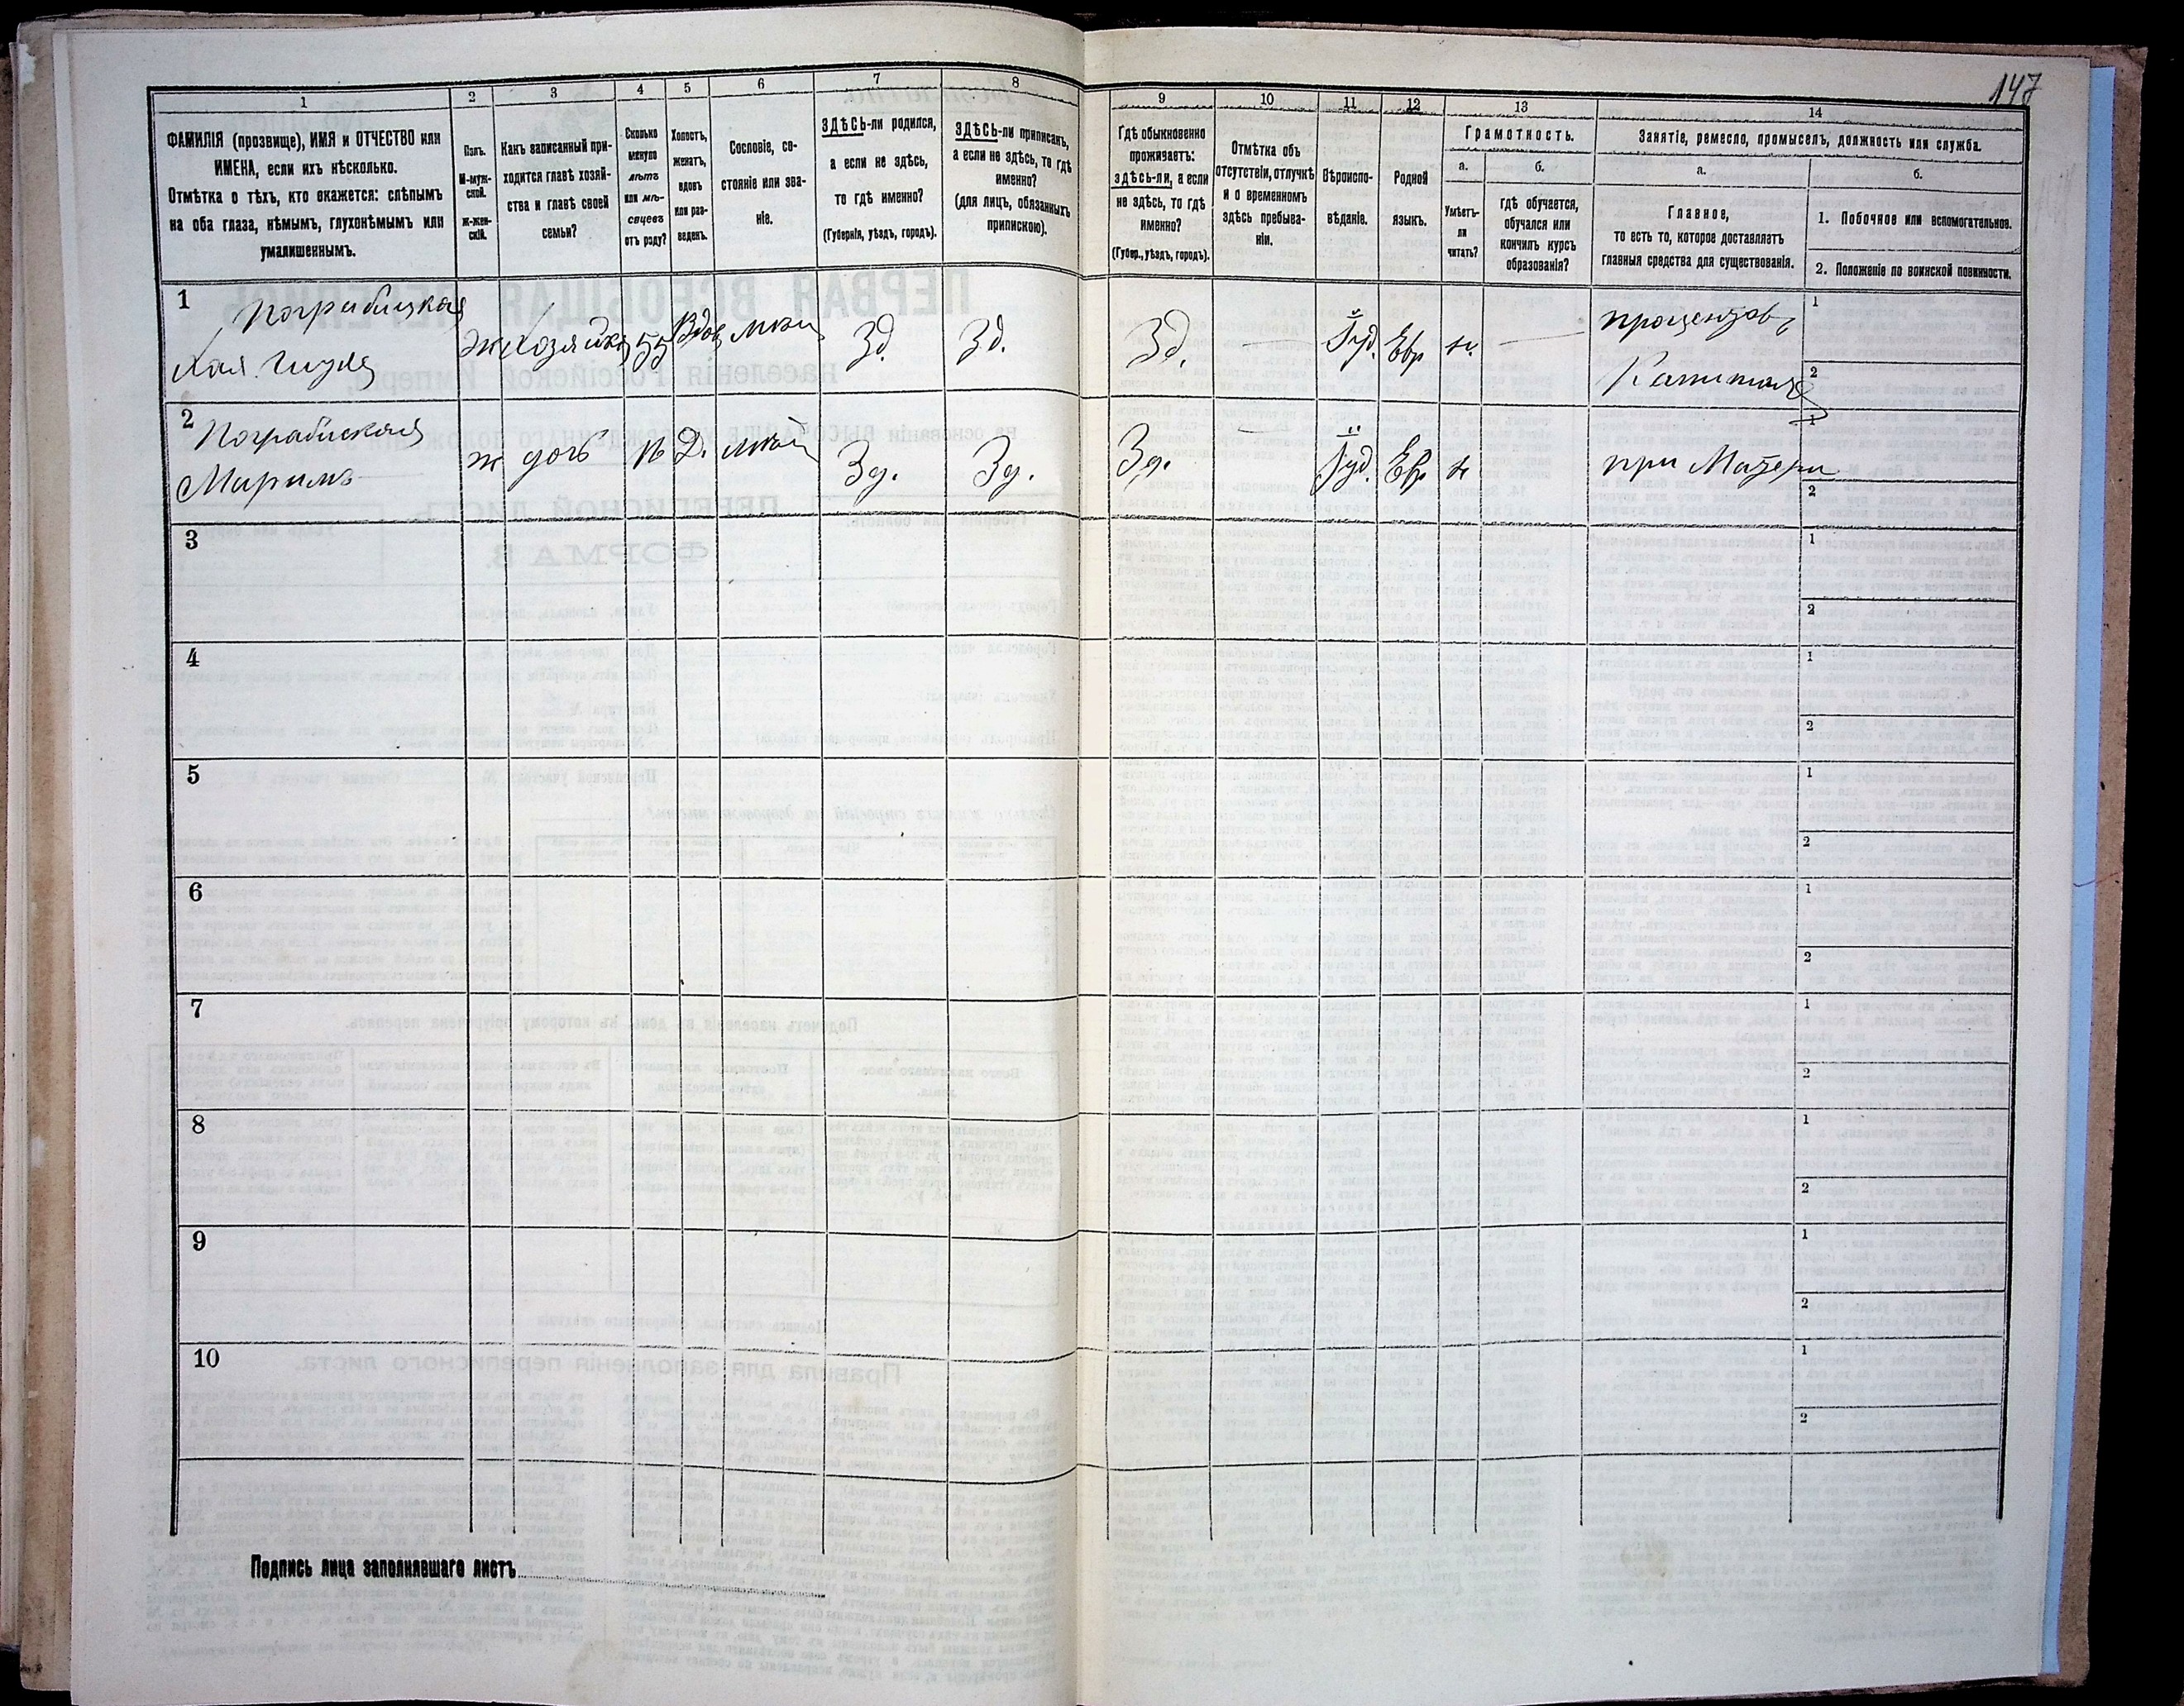 147
1
2
3
4
5
6
7
8
9
10
11
12
13
14
ФАМИЛІЯ (прозвище), ИМЯ и ОТЧЕСТВО или
ИМЕНА, если ихъ нѣсколько.
Отмѣтка о тѣхъ, кто окажется: слѣпымъ
на оба глаза, нѣмымъ, глухонѣмымъ или
умалишеннымъ.
Полъ.
М-муж-
ской.
Ж-жен-
скій.
Какъ записанный при-
ходится главѣ хозяй-
ства и главѣ своей
семьи?
Сколько
минуло
лѣтъ
или мѣ-
сяцевъ
отъ роду?
Холостъ,
женатъ,
вдовъ
или раз-
веденъ.
Сословіе, со-
стояніе или зва-
ніе.
ЗДѢСЬ-ли родился,
а если не здѣсь,
то гдѣ именно?
(Губернія, уѣздъ, городъ).
ЗДѢСЬ-ли приписанъ,
а если не здѣсь, то гдѣ
именно?
(для лицъ, обязанныхъ
припискою).
Гдѣ обыкновенно
проживаетъ:
здѣсь-ли, а если
не здѣсь, то гдѣ
именно?
(Губер., уѣздъ, городъ).
Отмѣтка объ
отсутствіи, отлучкѣ
и о временномъ
здѣсь пребыва-
ніи.
Вѣроиспо-
вѣданіе.
Родной
языкъ.
Грамотность.
а.
Умѣетъ-
ли
читать?
б.
гдѣ обучается,
обучался или
кончилъ курсъ
образованія?
Занятіе, ремесло, промыселъ, должность или служба.
а.
Главное,
то есть то, которое доставляетъ
главныя средства для существованія.
б.
1. Побочное или вспомогательное.
2. Положеніе по воинской повинности.
1
Хая
Ж
Хозяйка
55
Вдов
Зд.
Зд.
Зд.
Іуд.
Евр
н.
Капитала
1
2
2
Маримъ
ж
дочь
16
Д.
Зд.
Зд.
Зд.
Іуд.
Евр
н
при Матери
1
2
3
1
2
4
1
2
5
1
2
6
1
2
7
1
2
8
1
2
9
1
2
10
1
2
Подпись лица заполнявшаго листъ